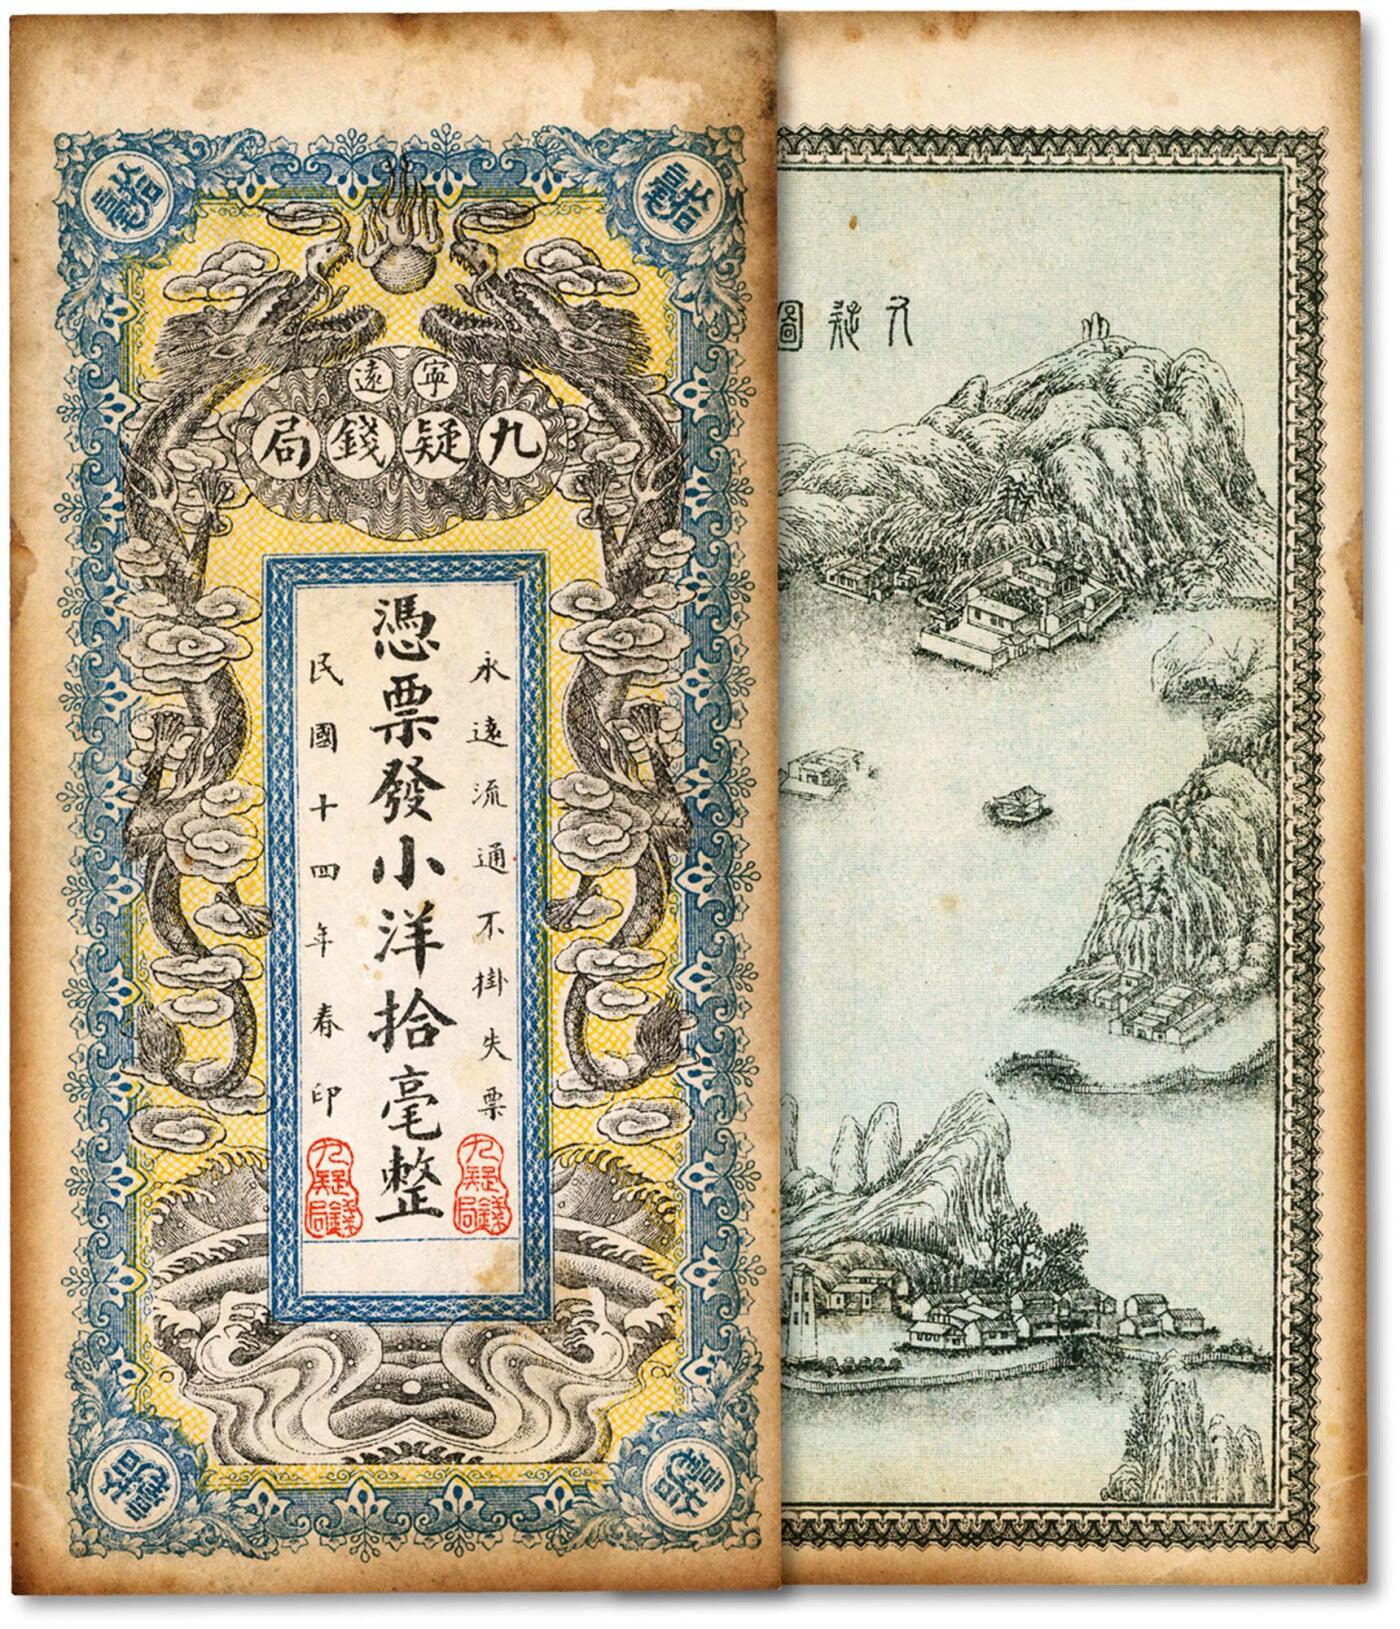 拾毫
拾毫
寧遠
九疑錢局
永遠流通不掛失票
憑票發小洋拾毫整
民國十四年春印
九疑錢局
九疑錢局
拾毫
拾毫
九疑圖